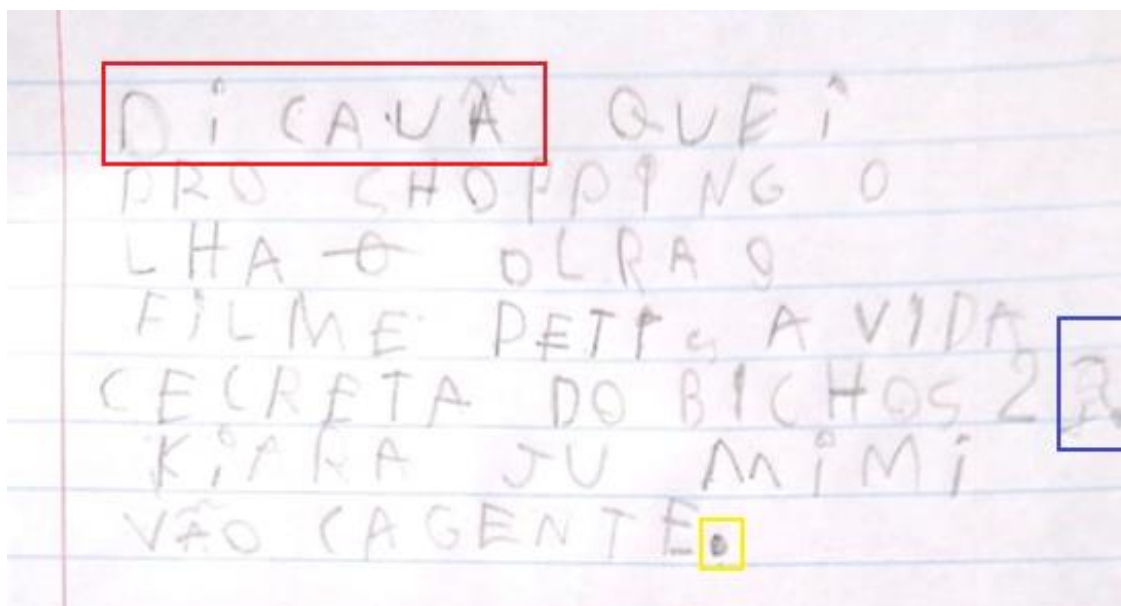 DiCAUÃ QUEi
PRO SHOPPING O
LHA OLRA O
FiLME PETIS A VIDA
CECRETA DO BICHOS 2 A
KiARA JU MiMi
VÃO CAGENTE.